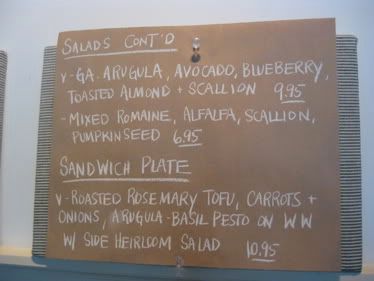 SALADS CONT'D
V - GA. ARUGULA, AVOCADO, BLUEBERRY,
TOASTED ALMOND + SCALLION 9.95
- MIXED ROMAINE, ALFALFA, SCALLION,
PUMPKINSEED 6.95
SANDWICH PLATE
V - ROASTED ROSEMARY TOFU, CARROTS +
ONIONS, ARUGULA-BASIL PESTO ON WW
W/ SIDE HEIRLOOM SALAD 10.95